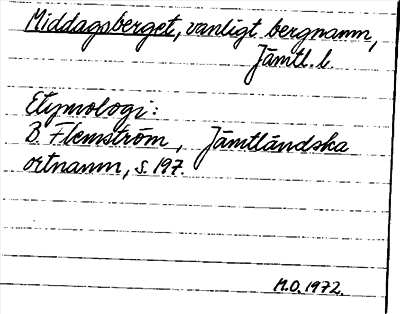 Middagsberget, vanligt bergnamn,
Jämtl. l.
Etymologi:
B Flemström, Jämtländska
ortnamn, s. 197.
M.O. 1972.